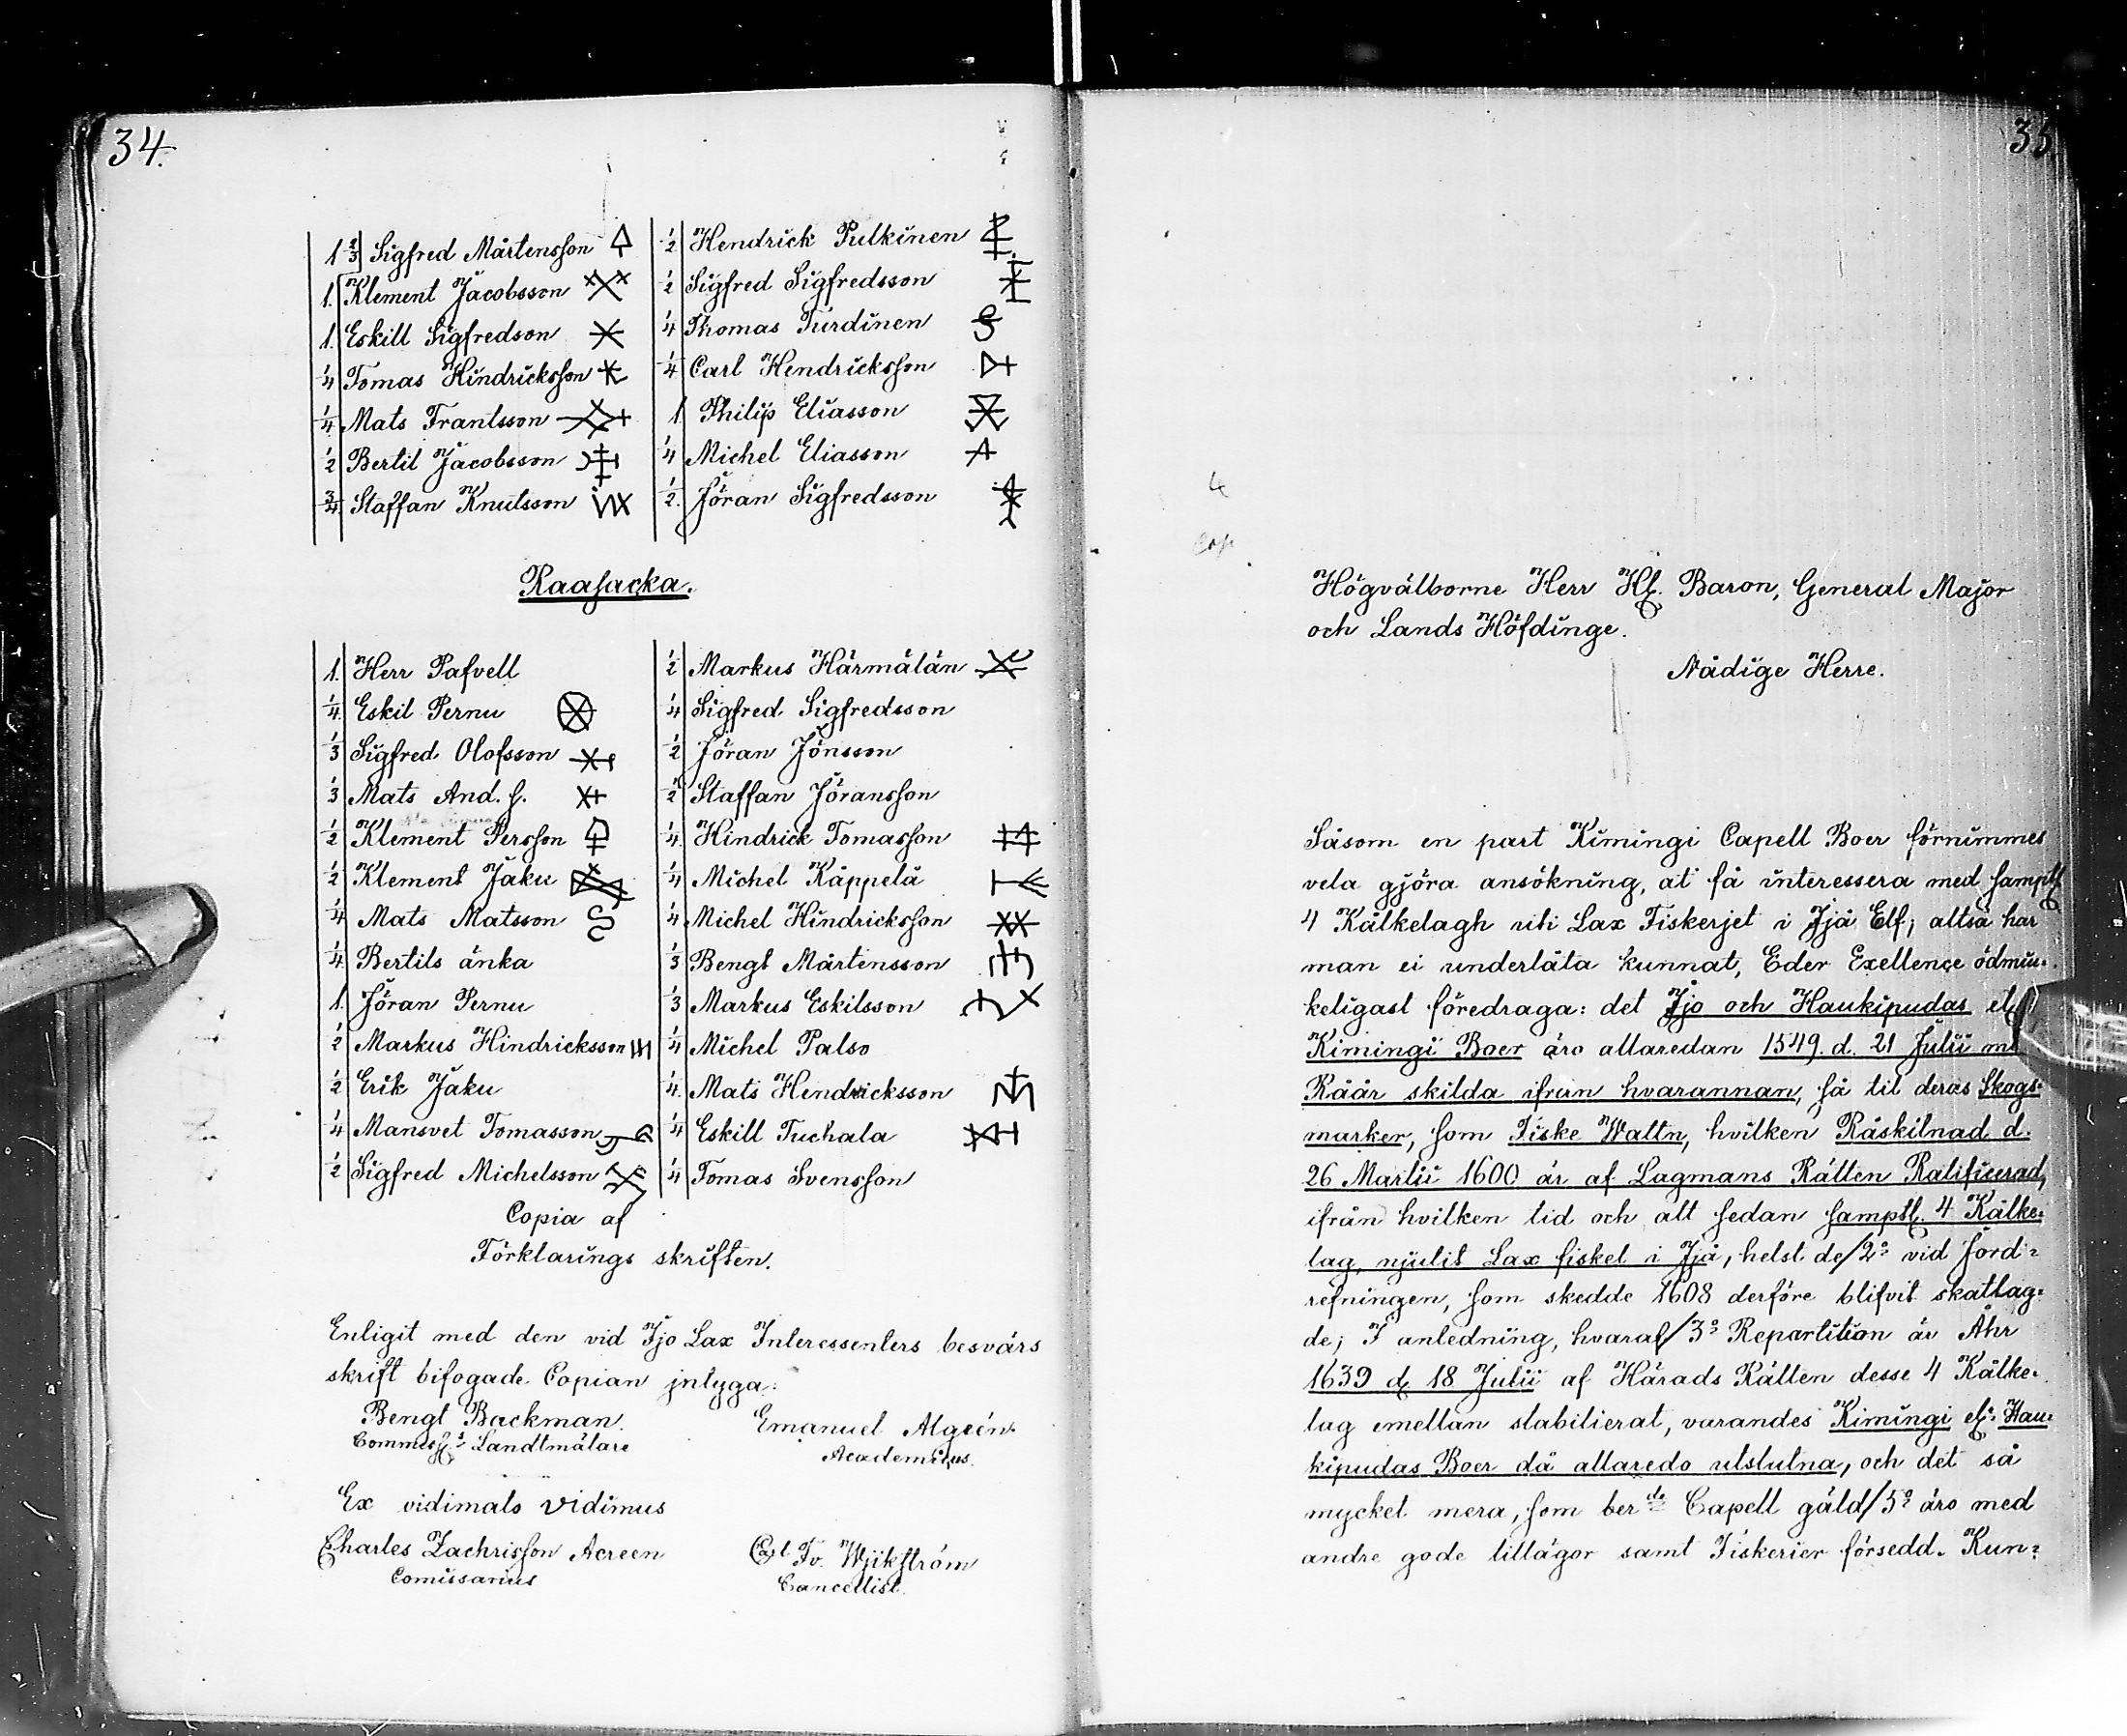 34.
1 2/3 Sigfred Mårtensson
1. Klement Jacobsson
1. Eskill Sigfredson
1/4 Tomas Hindricksson
1/4 Mats Frantsson
1/2 Bertil Jacobsson
3/4 Staffan Knutsson
1/2 Hendrick Pulkinen
1/2 Sigfred Sigfredsson
1/4 Thomas Turdinen
1/4 Carl Hendricksson
1 Philip Eliasson
1/4 Michel Eliasson
1/2. Jöran Sigfredsson
Raasacka.
1. Herr Pafvell
1/4. Eskil Pernu
1/3 Sigfred Olofsson
1/3 Mats And. s.
1/2 Klement Persson
1/2 Klement Jaku
1/4 Mats Matsson
1/4. Bertils änka
1. Jöran Pernu
1/2 Markus Hindricksson
1/2 Erik Jaku
1/4 Mansvet Tomasson
1/2 Sigfred Michelsson
1/2 Markus Härmälän
1/4 Sigfred Sigfredsson
1/2 Jöran Jönsson
1/2 Staffan Jöransson
1/4. Hindrick Tomasson
1/4 Michel Käppelä
1/4 Michel Hindricksson
1/3 Bengt Mårtensson
1/3 Markus Eskilsson
1/4 Michel Palso
1/4. Mats Hendricksson
1/4 Eskill Tuchala
1/4 Tomas Svensson
Copia af
Förklarings skriften.
Enligit med den vid Ijo Lax Interessenters besvärs
skrift bifogade Copian jntyga:
Bengt Backman. Emanuel Algeén.
Landtmätare Academicus.
Ex vidimato vidimus
Charles Zachrisson Acreen Carl Fr. Wijkström
Comissarius Cancellist.
35
4
Cop
Högvälborne Herr Hr. Baron, General Major
och Lands Höfdinge.
Nådige Herre.
Såsom en part Kimingi Capell Boer förnimmes
vela gjöra ansökning, at få interessera med samptl
4 Kålkelagh uti Lax Fiskerjet i Ijå Elf; altså har
man ei underlåta kunnat, Eder Exellence ödmiu-
keligast föredraga: det Ijo och Haukipudas
Kimingi Boer äro allaredan 1549. d. 21 Julii
Råår skilda ifrån hvarannan, så til deras Skogs-
marker, som Fiske Wattn, hvilken Råskilnad d.
26 Martii 1600 är af Lagmans Rätten Ratificerad,
ifrån hvilken tid och alt sedan samptl. 4 Kålke-
lag, njutit Lax fisket i Ijå, helst de/2o vid Jord-
refningen, som skedde 1608 derföre blifvit skattlag-
de; I anledning, hvaraf/3o Repartition är Åhr
1639 d. 18 Julii af Härads Rätten desse 4 Kålke-
lag emellan stabilierat, varandes Kimingi el: Hau-
kipudas Boer då allaredo utslutna, och det så
mycket mera, som berde Capell gäld/5o äro med
andre gode tillägor samt Fiskerier försedd. Kun-